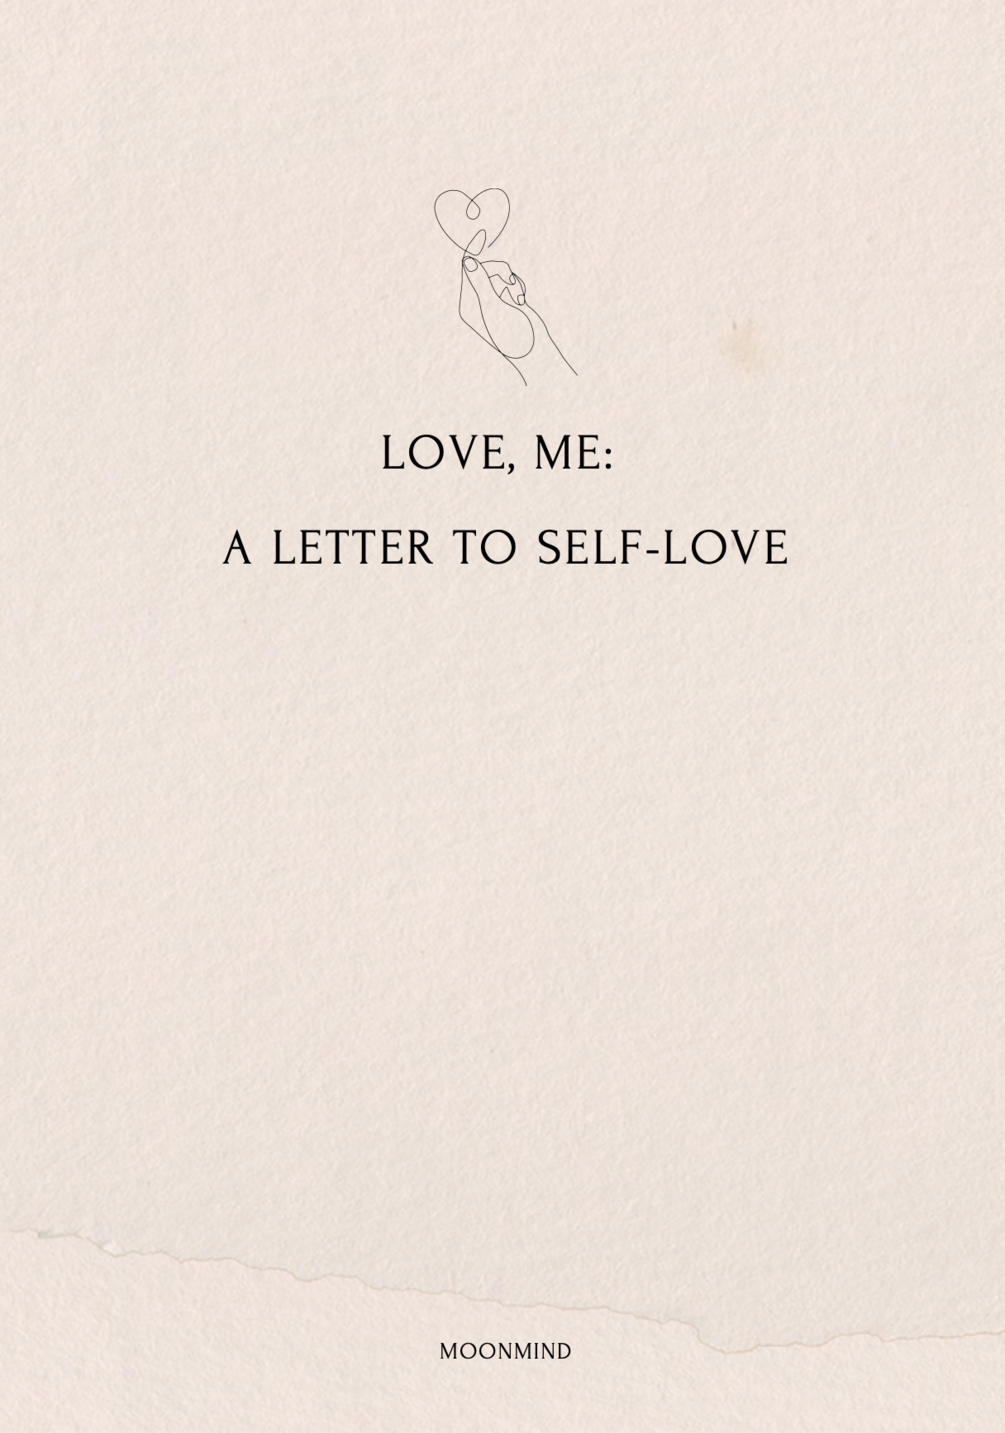 LOVE, ME:
A LETTER TO SELF-LOVE
MOONMIND